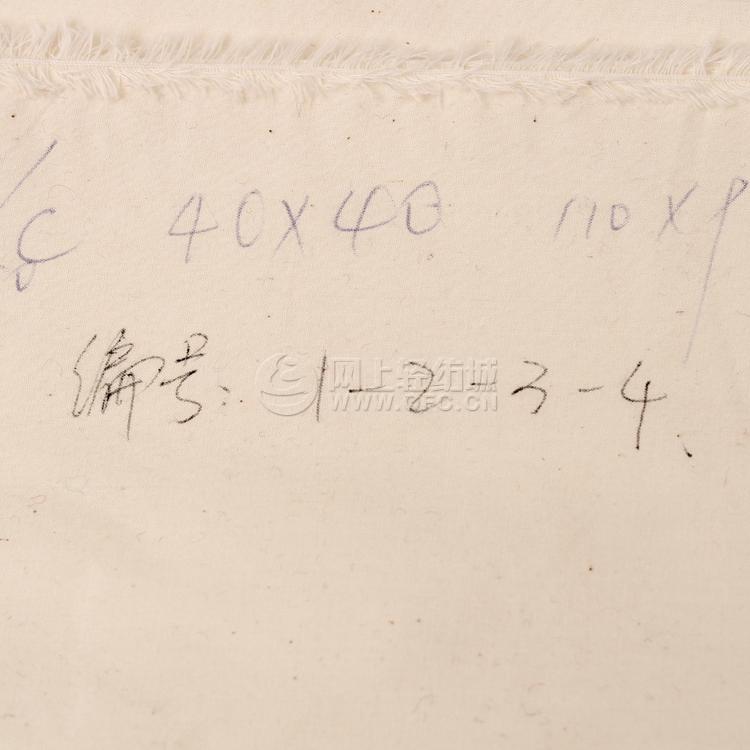 C 40X40 110X9
编号: 1-2-3-4、
网上轻纺城
WWW.QFC.CN